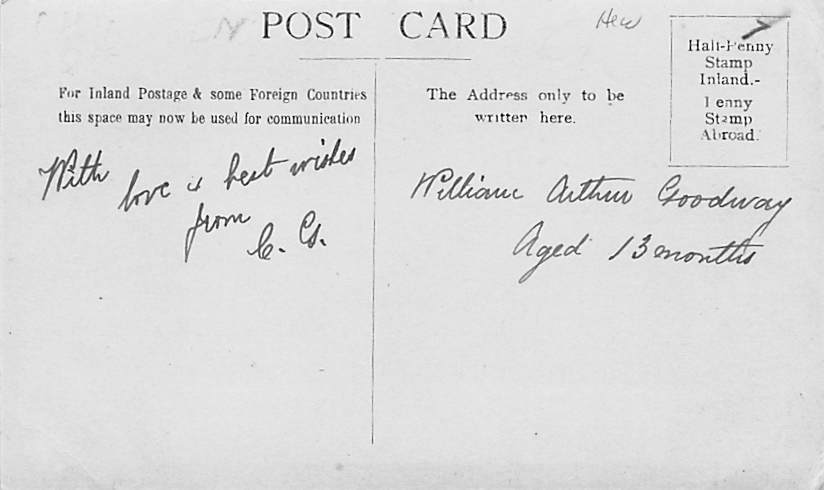 POST CARD
For Inland Postage & some Foreign Countries
this space may now be used for communication
The Address only to be
written here.
Half-Penny
Stamp
Inland.-
Penny
Stamp
Abroad.
With
love & best wishes
from
C. G.
William Arthur Goodway
Aged 13 months